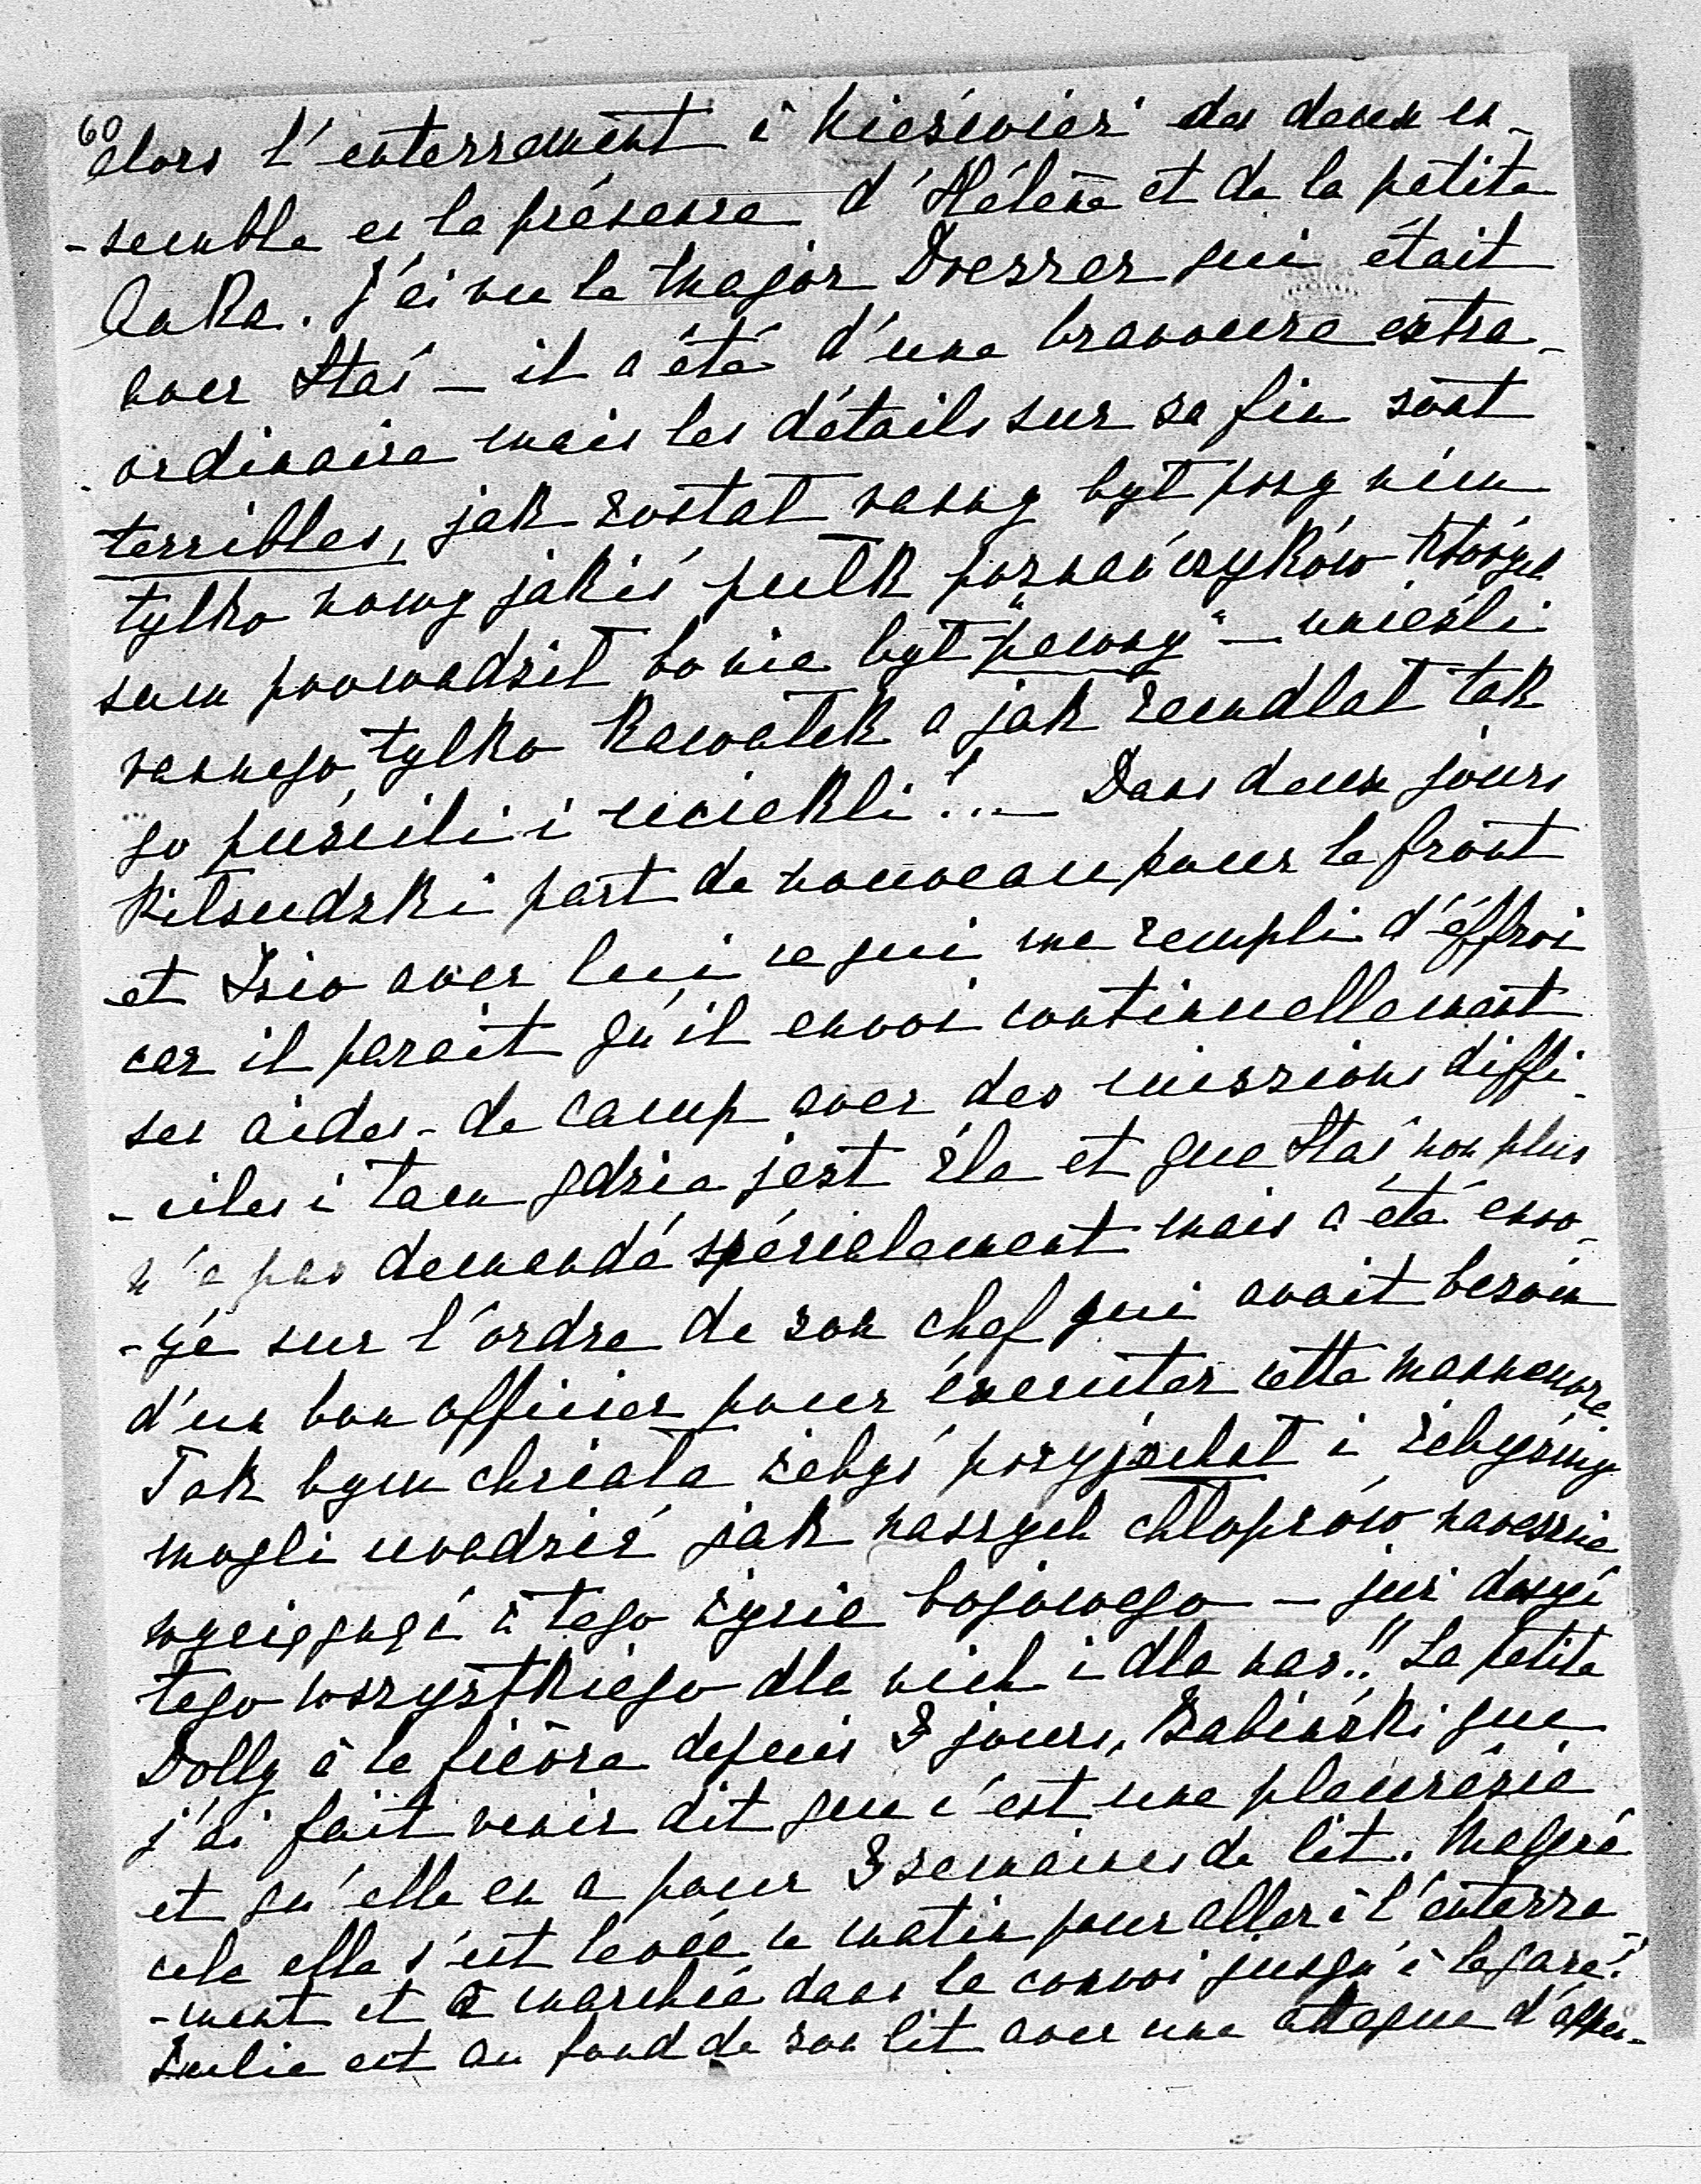 60
alors l'enterrement à Nieśwież des deux en-
-semble en la présence d'Hélène et de la petite
Anka. J'ai vu le Major Dresser qui était
avec Staś — il a été d'une bravoure extra-
ordinaire mais les détails sur sa fin sont
terribles, jak został ranny był przy nim
tylko nowy jakiś pułk poznańczyków których
sam prowadził bo nie był "pewny" — unieśli
rannego tylko kawałek a jak zemdlał tak
go puścili i uciekli!.. — Dans deux jours
Piłsudzki part de nouveau pour le front
et Izio avec lui ce qui me rempli d'éffroi
car il parait qu'il envoi continuellement
ses aides-de camp avec des missions diffi-
-ciles i tam gdzie jest źle et que Staś non plus
n'a pas demandé spécialement mais a été envo-
-yé sur l'ordre de son chef qui avait besoin
d'un bon officier pour éxecuter cette manneuvre
Tak bym chciała żebyś przyjechał i żebyśmy
mogli uradzić jak naszych chłopców nareszcie
wyciągnąć z tego życia bojowego — już dosyć
tego wszystkiego dla nich i dla nas!! La petite
Dolly à la fièvre depuis 3 jours, Żabiński que
j'ai fait venir dit que c'est une pleurésie
et qu'elle en a pour 3 semaines de lit. Malgré
cela elle s'est levée ce matin pour aller à l'enterre-
-ment et a marché dans le convoi jusqu'à la gare!
Julie est au fond de son lit avec une attaque d'appen-